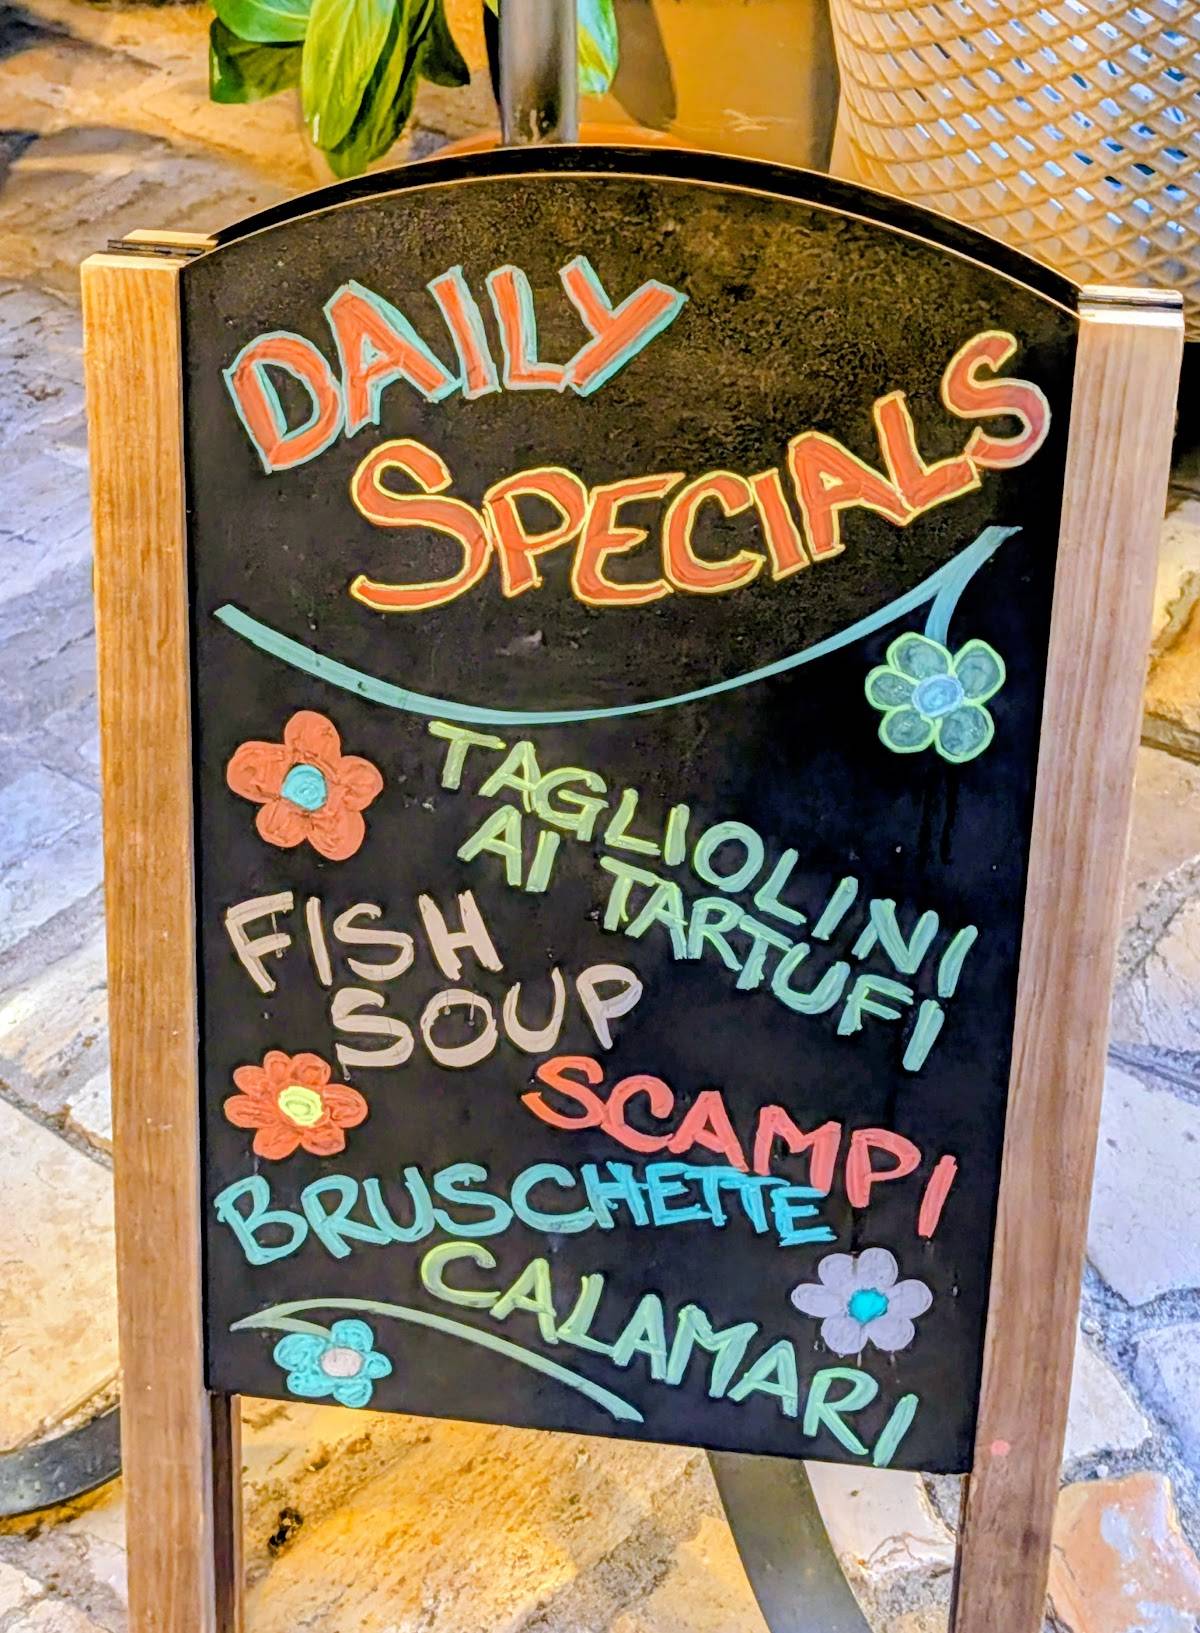 DAILY
SPECIALS
TAGLIOLINI
AI TARTUFI
FISH
SOUP
SCAMPI
BRUSCHETTE
CALAMARI